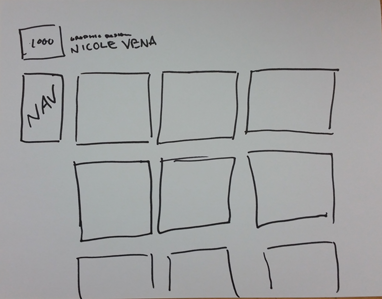 LOGO
GRAPHIC DESIGN
NICOLE VENA
NAV